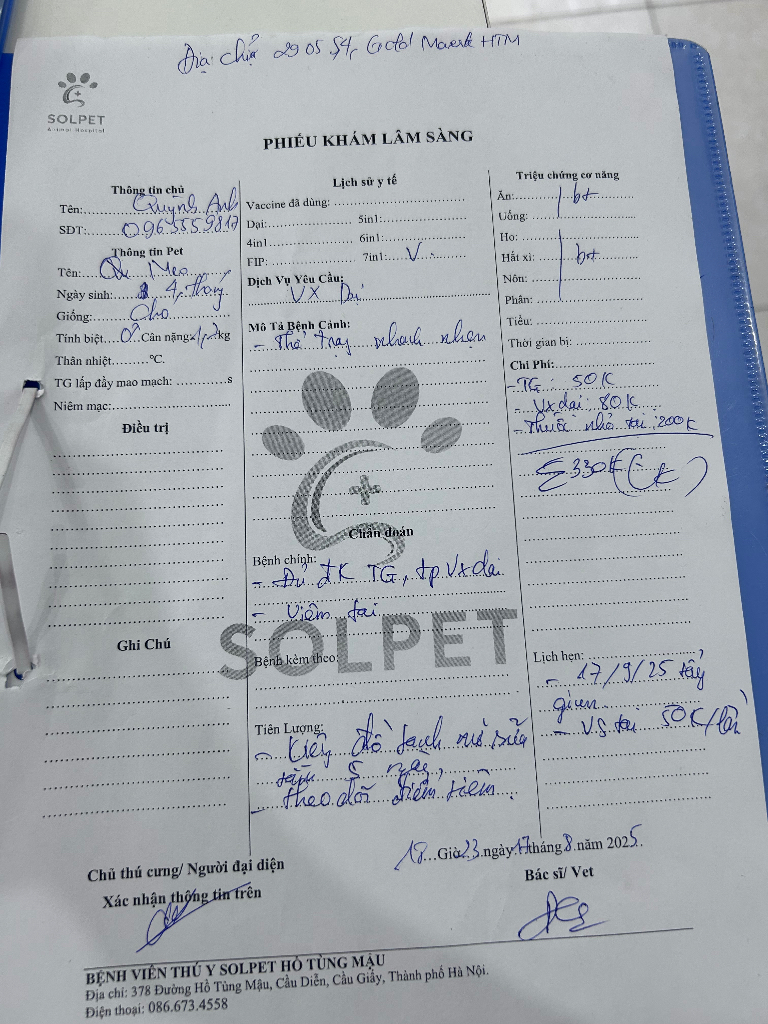 Địa chỉ 2905 S4, Gold Mark HTM
SOLPET
Animal Hospital
PHIẾU KHÁM LÂM SÀNG
Thông tin chủ
Tên: Quỳnh Anh
SĐT: 0965559817
Thông tin Pet
Tên: Mèo
Ngày sinh: 4 tháng
Giống: Chó
Tính biệt Cân nặng kg
Thân nhiệt °C.
TG lấp đầy mao mạch: s
Niêm mạc:
Điều trị
Ghi Chú
Lịch sử y tế
Vaccine đã dùng:
Dại: 5in1:
4in1 6in1:
FIP: 7in1: V
Dịch Vụ Yêu Cầu:
VX Dại
Mô Tả Bệnh Cảnh:
- Thể trạng nhanh nhẹn
Chẩn đoán
Bệnh chính:
- Đủ ĐK TG, tp Vx dại
- Viêm tai
SOLPET
Bệnh kèm theo:
Tiên Lượng:
- Kiêng đồ tanh mỡ sữa
tắm 5 ngày,
- theo dõi điểm tiêm.
Triệu chứng cơ năng
Ăn: bt
Uống:
Ho:
Hắt xì: bt
Nôn:
Phân:
Tiểu:
Thời gian bị:
Chi Phí:
- TG: 50K
- Vx dại: 80K
- Thuốc nhỏ tai: 200K
330K (CK)
Lịch hẹn:
- 17/9/25 tẩy
giun
- VS tai 50K/lần
18 Giờ 23 ngày 17 tháng 8 năm 2025.
Chủ thú cưng/ Người đại diện
Xác nhận thông tin trên
Bác sĩ/ Vet
BỆNH VIỆN THÚ Y SOLPET HỒ TÙNG MẬU
Địa chỉ: 378 Đường Hồ Tùng Mậu, Cầu Diễn, Cầu Giấy, Thành phố Hà Nội.
Điện thoại: 086.673.4558